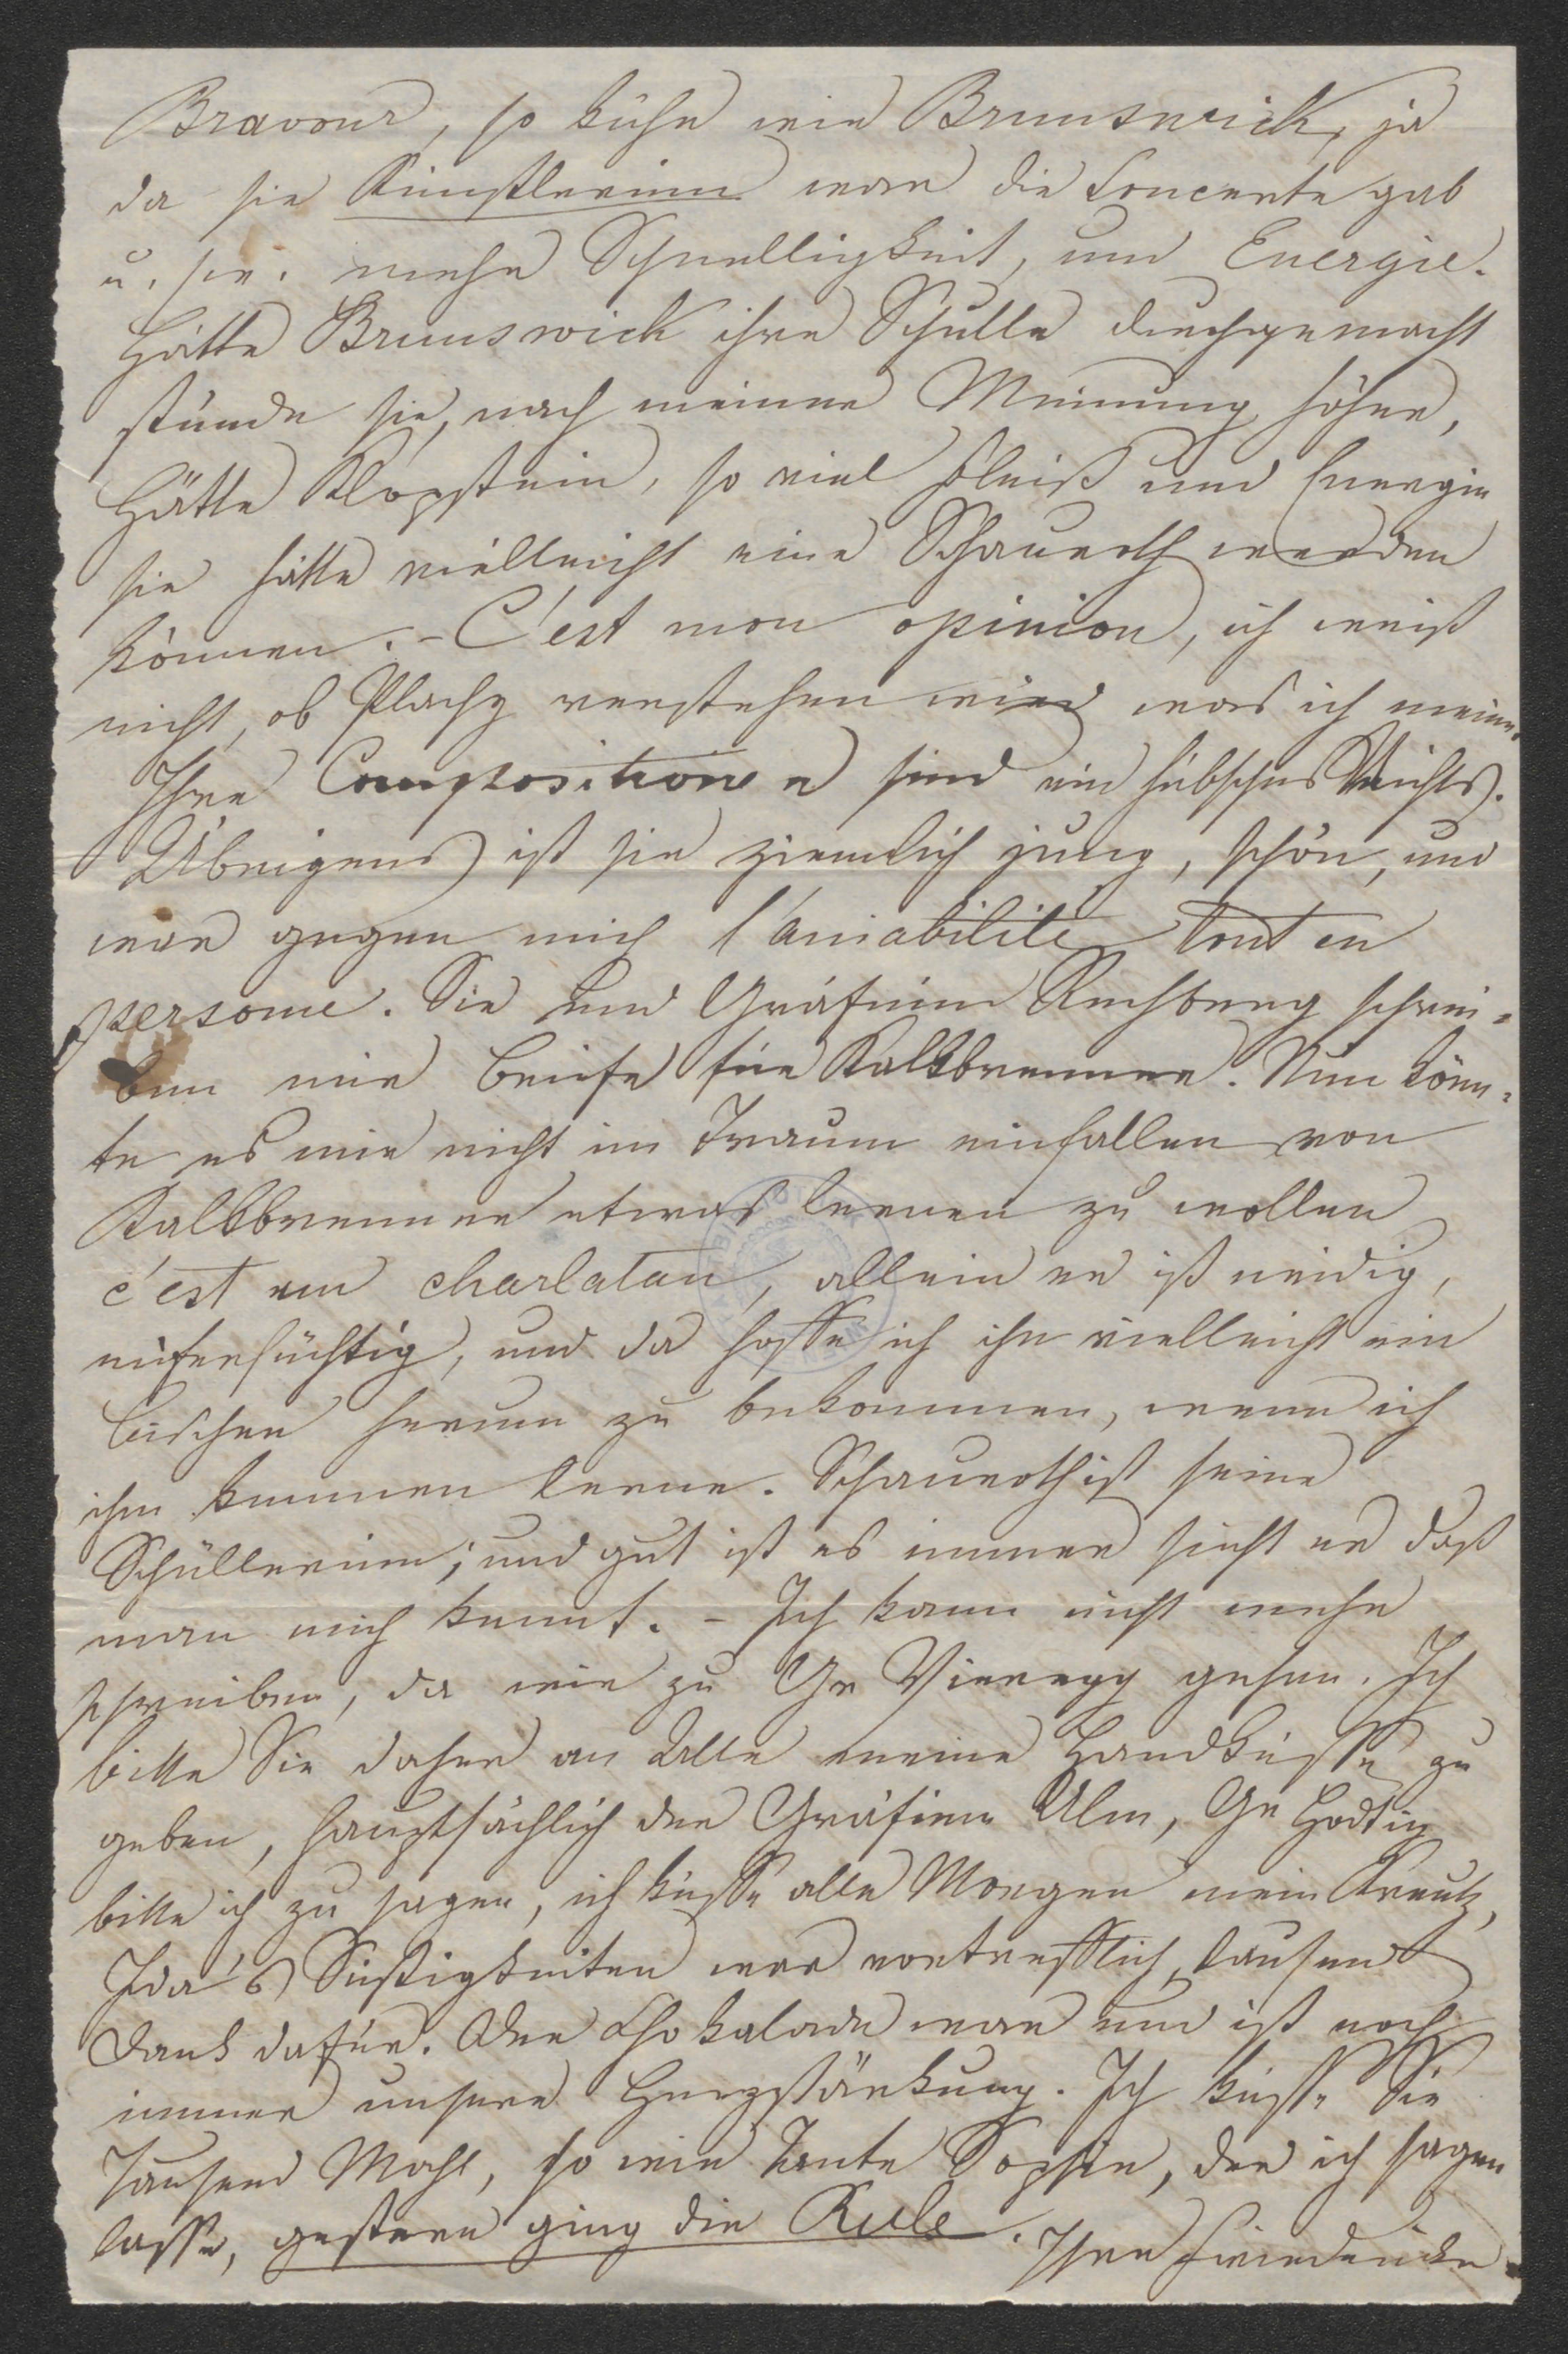 Bravour, so kühn wie Brunswick, ja
da sie Künstlerinn war die Concerte gab
u. s. w. mehr Schnelligkeit, und Energie.
Hätte Brunswick ihre Schulle durchgemacht
stünde sie, nach meiner Meinung höher,
Hätte Klopstein, so viel Fleiß und Energie
sie hätte vielleicht eine Schauroth werden
können. – C'est mon opinion, ich weiß
nicht, ob Plachy verstehen wird was ich meine.
Ihre Compositionen sind ein hübsches Nichts.
Übrigens ist sie ziemlich jung, schön, und
war gegen mich l'amabilité tout en
personne. Sie und Gräfinn Rechberg schrei=
ben mir Briefe für Kalkbrenner. Nun könn=
te es mir nicht im Traum einfallen von
Kalkbrenner etwas lernen zu wollen
c'est un charlatan, allein er ist neidig,
eifersüchtig, und da hoffe ich ihn vielleicht ein
bischen herum zu bekommen, wenn ich
ihn kennen lerne. Schauroth ist seine
Schüllerinn; und gut ist es immer sieht er daß
man mich kennt. – Ich kann nicht mehr
schreiben, da wir zu Gr Vieregg gehen. Ich
bitte Sie daher an Alle meine Handküsse zu
geben, hauptsächlich der Gräfinn Ulm, Gr
bitte ich zu sagen, ich küsse alle Morgen mein Kreutz,
Ida's Süßigkeiten war vortrefflich, tausend
Dank dafür. Der Chokalade war und ist noch
immer unsere Herzstärkung. Ich küsse Sie
tausend Mahl, so wie Tante Sophie, der ich sagen
lasse, gestern ging die Rule. Ihre Friedericke